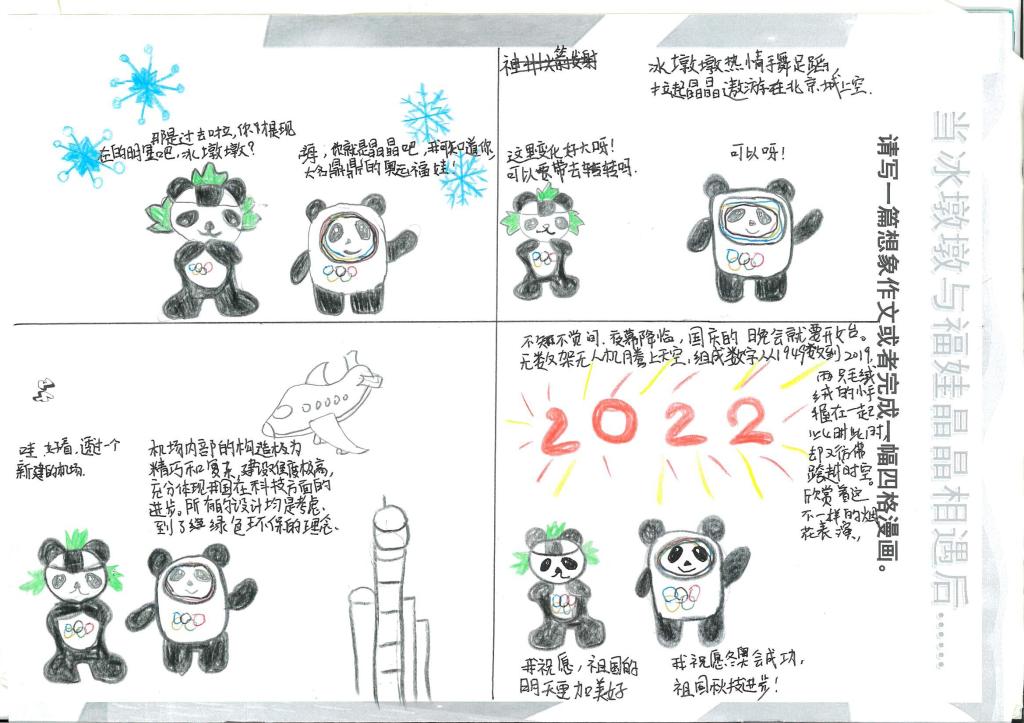 当冰墩墩与福娃晶晶相遇后……
请写一篇想象作文或者完成一幅四格漫画。
那是过去啦,你才是现
在的明星吧,冰墩墩?
呀,你就是晶晶吧,我可知道你
大名鼎鼎的奥运福娃!
冰墩墩热情手舞足蹈,
拉起晶晶遨游在北京城上空.
这里变化好大呀!
可以带去转转吗.
可以呀!
哇,好看,透过一个
新建的机场.
机场内部的构造极为
精巧和复杂,建设难度极高,
充分体现我国在科技方面的
进步。所有的设计均是考虑
到了绿色环保的理念.
不知不觉间,夜幕降临,国庆的晚会就要开始。
无数架无人机腾上天空,组成数字从1949数到2019.
两只毛绒
绒的小手
握在一起,
此时此时
却又仿佛
跨越时空。
欣赏着这
不一样的烟
花表演,
2022
我祝愿,祖国的
明天更加美好
我祝愿冬奥会成功,
祖国科技进步!